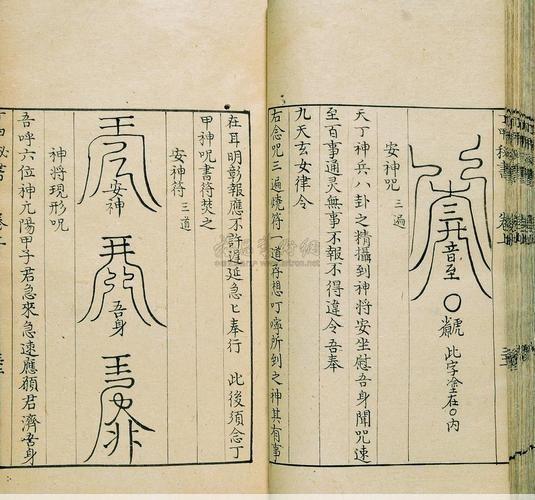 音至
此字塗在〇内
安神咒 三遍
天丁神兵八卦之精攝到神將安坐慰吾身聞咒速
至百事通灵無事不報不得違令吾奉
九天玄女律令
右念咒三遍燒符一道存想叮嚀所到之神其有事
在耳明彰報應不許遅延急匕奉行 此後須念丁
甲神咒書符焚之
安神符 三道
安神
吾身
神將現形咒
吾呼六位神九陽甲子君急來急速應願君濟吾身